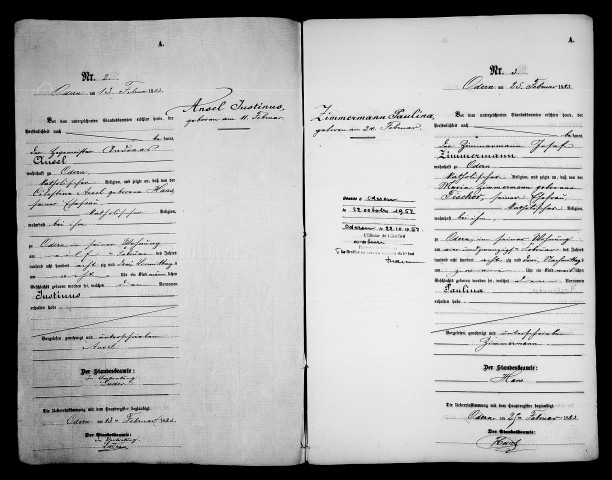 A.
Nr. 2.
Odern am 13. Februar 1883.
Ansel Justinus,
geboren am 11. Februar.
Vor dem unterzeichneten Standesbeamten erschien heute, der
Persönlichkeit nach
kannt,
der Andreas
Ansel
wohnhaft zu Odern
katholischer Religion, und zeigte an, daß von der
Cölestina Ansel geborene Hans,
seiner Ehefrau,
katholischer Religion,
wohnhaft bei ihm
zu Odern in seiner Wohnung
am elf ten Februar des Jahres
tausend acht hundert achtzig und drei Vormittags
um acht Uhr ein Kind männlichen
Geschlechts geboren worden sei, welches den Vornamen
Justinus
erhalten habe
Vorgelesen, genehmigt und unterschrieben
Ansel
Der Standesbeamte:
In Vertretung
Die Uebereinstimmung mit dem Hauptregister beglaubigt
Odern am 13ten Februar 1883.
Der Standesbeamte:
In Vertretung
A.
Nr. 3.
Odern am 25. Februar 1883.
Zimmermann Paulina,
geboren am 24. Februar.
Vor dem unterzeichneten Standesbeamten erschien heute, der
Persönlichkeit nach
be kannt,
der Zimmermann Josef
Zimmermann
wohnhaft zu Odern
katholischer Religion, und zeigte an, daß von der
Maria Zimmermann geborene
Fischer, seiner Ehefrau,
katholischer Religion,
wohnhaft bei ihm,
zu Odern in seiner Wohnung
am vier und zwanzigsten Februar des Jahres
tausend acht hundert achtzig und drei, Nachmittags
um zwei Uhr ein Kind weiblichen
Geschlechts geboren worden sei, welches den Vornamen
Paulina
erhalten habe
Vorgelesen, genehmigt und unterschrieben
Zimmermann
Der Standesbeamte:
Hans
Die Uebereinstimmung mit dem Hauptregister beglaubigt
Odern am 25ten Februar 1883.
Der Standesbeamte:
Hans
Oderen
22 octobre 1952
Oderen 22.10.1952
L'Officier de l'Etat Civil